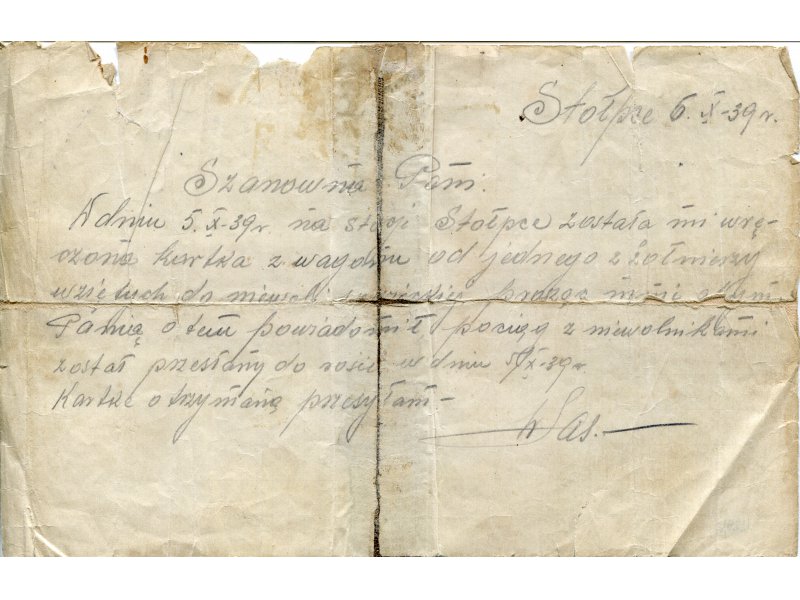 Stołpce 6. X-39 r.
Szanowna Pani.
W dniu 5. X-39 r. na stacji Stołpce została mi wrę-
czona kartka z wagonu od jednego z żołnierzy
wziętych do niewoli sowieckiej prosząc mnie abym
Panią o tem powiadomił pociąg z niewolnikami
został przesłany do rosii w dniu 5/X-39 r.
Kartkę otrzymaną przesyłam-